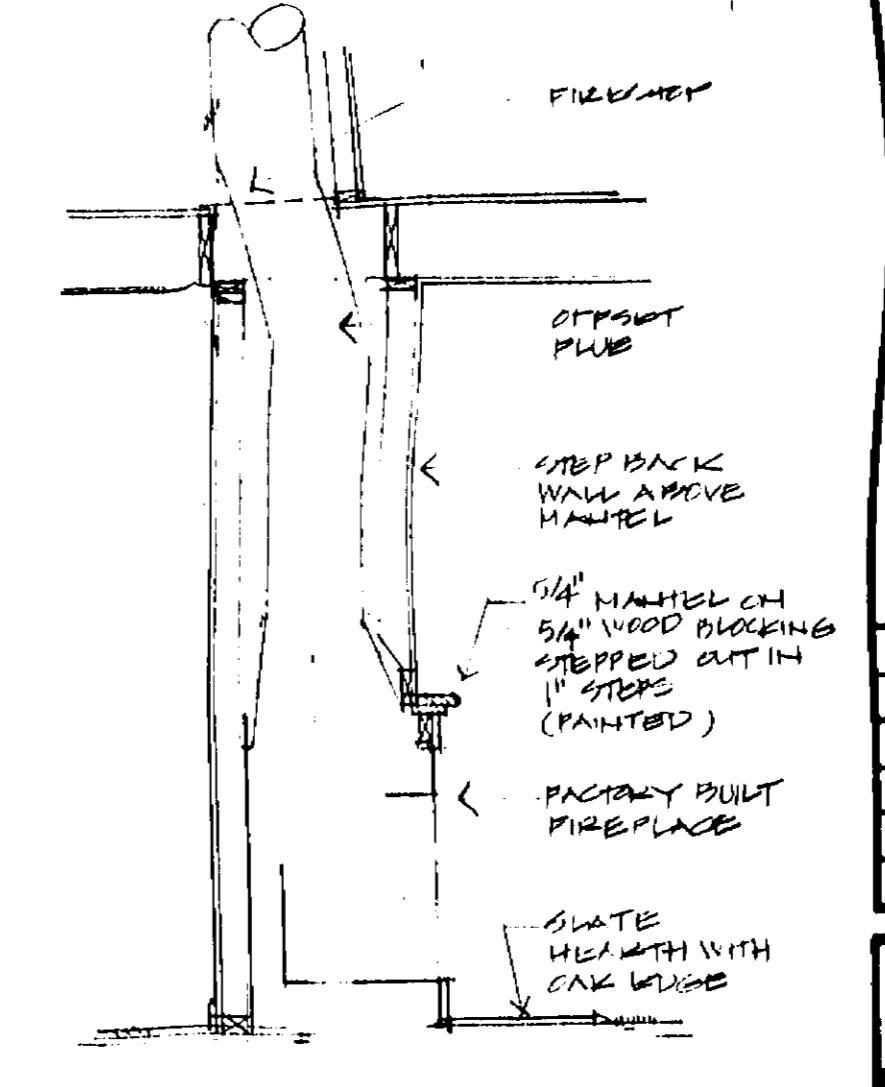 FIRESTOP
OFFSET
FLUE
STEP BACK
WALL ABOVE
MANTEL
5/4" MANTEL ON
5/4" WOOD BLOCKING
STEPPED OUT IN
1" STEPS
(PAINTED)
FACTORY BUILT
FIREPLACE
SLATE
HEARTH WITH
OAK EDGE